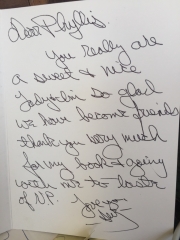 dear Phyllis.
You really are
a sweet & nice
Lady. I'm so glad
we have become friends
thank you very much
for my book & going
with me to
of N.P.